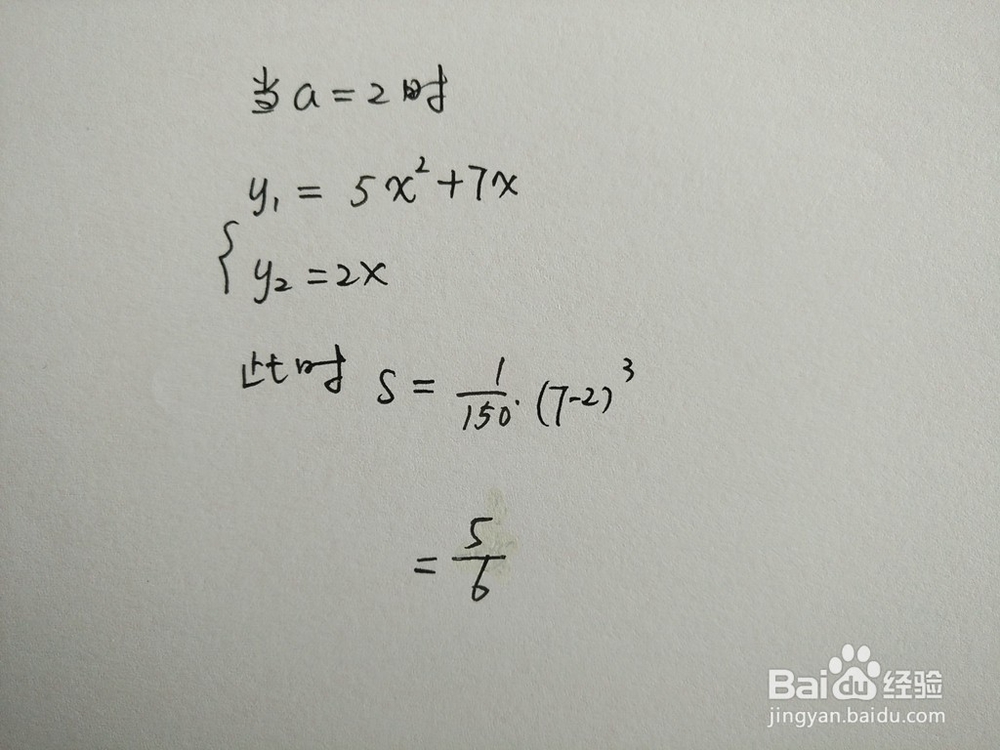 当a=2时
y₁ = 5x²+7x
{ y₂ =2x
此时 S = 1/150·(7-2)³
= 5/6
Baidu经验
jingyan.baidu.com